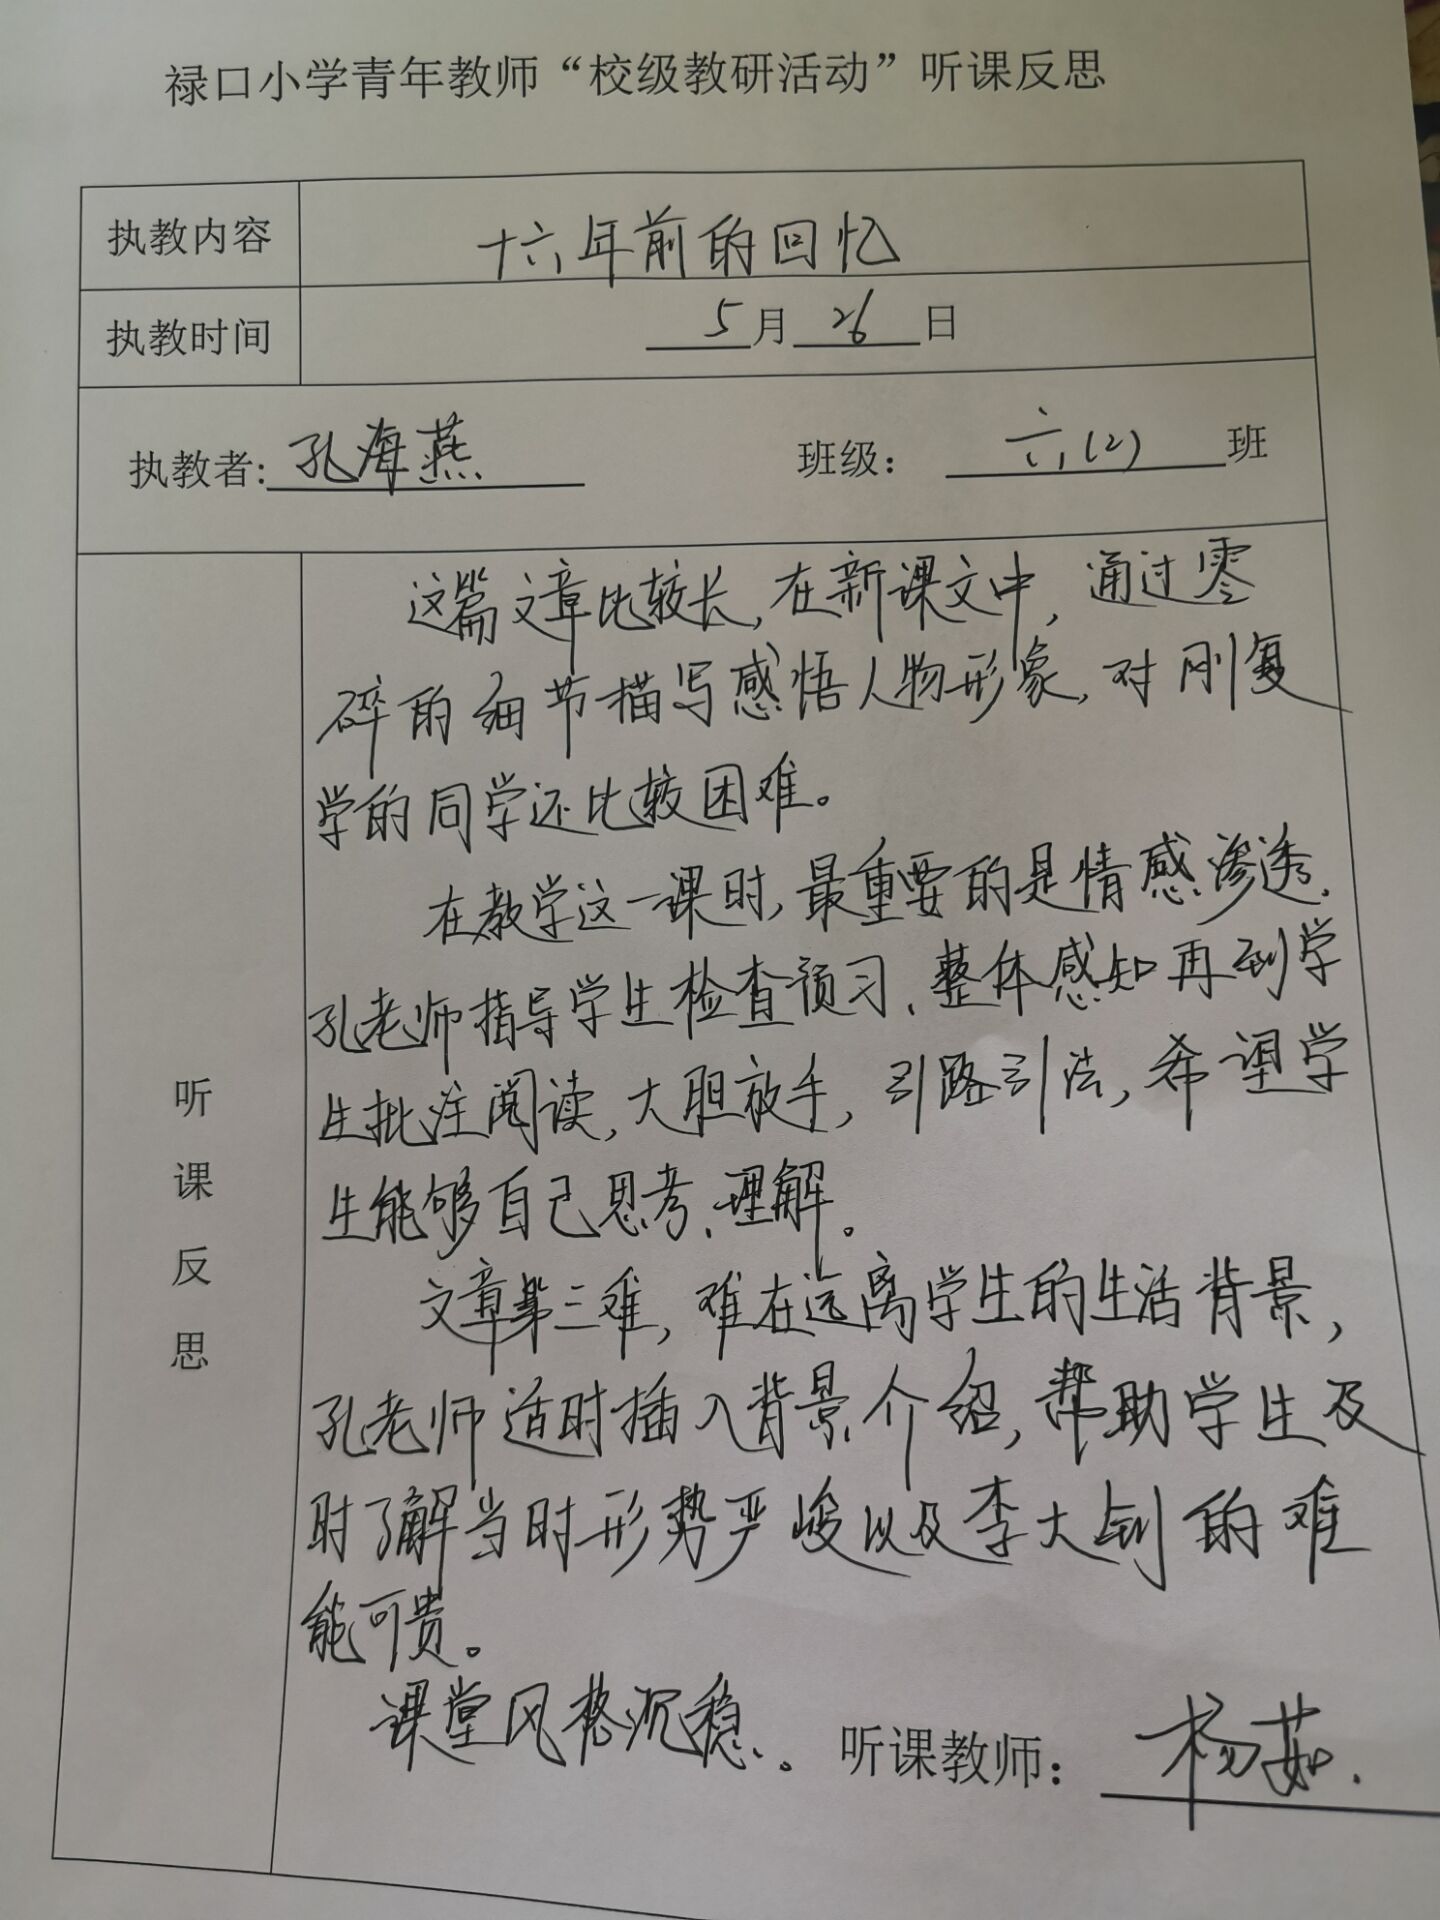 禄口小学青年教师“校级教研活动”听课反思
执教内容 十六年前的回忆
执教时间 5月26日
执教者:孔海燕 班级：六(2)班
听课反思
这篇文章比较长,在新课文中,通过零
碎的细节描写感悟人物形象,对刚复
学的同学还比较困难。
在教学这一课时,最重要的是情感渗透.
孔老师指导学生检查预习、整体感知再到学
生批注阅读,大胆放手,引路引法,希望学
生能够自己思考、理解。
文章第三难,难在远离学生的生活背景,
孔老师适时插入背景介绍,帮助学生及
时了解当时形势严峻以及李大钊的难
能可贵。
课堂风格沉稳。 听课教师：杨茹.